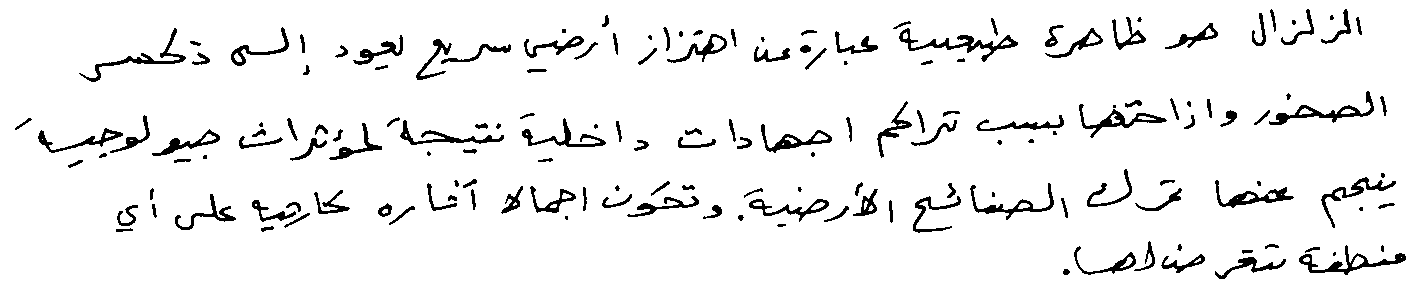 الزلزال هو ظاهرة طبيعية عبارة عن اهتزاز أرضي سريع يعود إلى تكسر
الصخور وازاحتها بسبب تراكم اجهادات داخلية نتيجة لمؤثرات جيولوجية
ينجم عنها تحرك الصفائح الأرضية. وتكون اجمالا آثاره كارثية على أي
منطقة تتعرض لها.